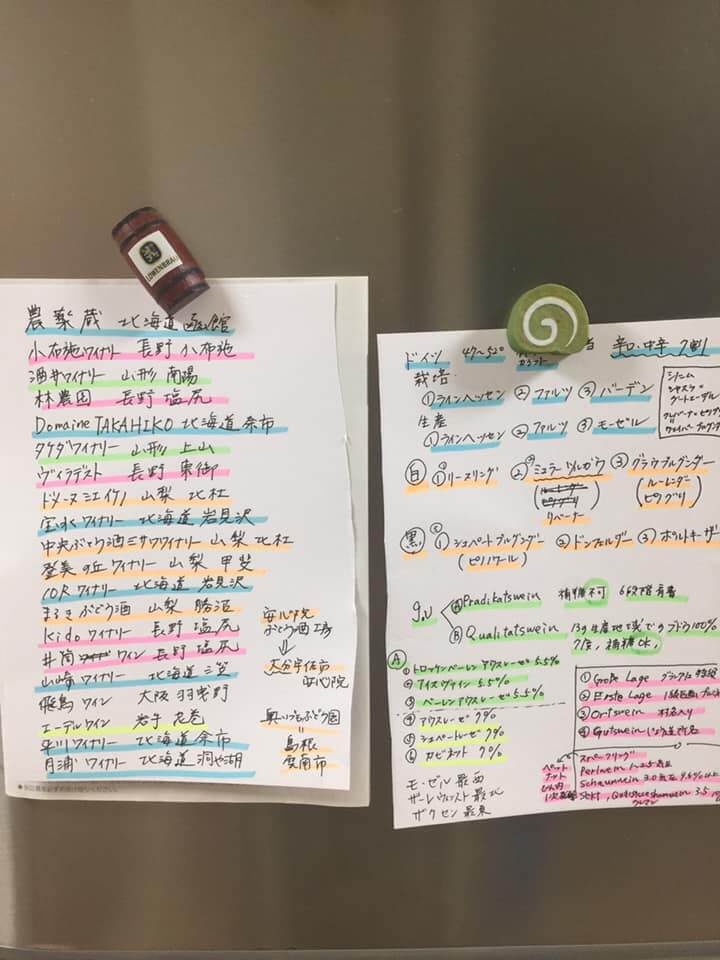 LÖWENBRÄU
農楽蔵 北海道 函館
小布施ワイナリー 長野 小布施
酒井ワイナリー 山形 南陽
林農園 長野 塩尻
Domaine TAKAHIKO 北海道 余市
タケダワイナリー 山形 上山
ヴィラデスト 長野 東御
ドメーヌ ミエ イケノ 山梨 北杜
宝水ワイナリー 北海道 岩見沢
中央ぶどう酒ミサワワイナリー 山梨 北杜
登美の丘ワイナリー 山梨 甲斐
10Rワイナリー 北海道 岩見沢
まるきぶどう酒 山梨 勝沼
Kidoワイナリー 長野 塩尻
井筒 ワイン 長野 塩尻
山崎ワイナリー 北海道 三笠
飛鳥ワイン 大阪 羽曳野
エーデルワイン 岩手 花巻
平川ワイナリー 北海道 余市
月浦ワイナリー 北海道 洞や湖
安心院
ぶどう酒工房
⇓
大分宇佐市
安心院
奥いづもぶどう園
=
島根
雲南市
ドイツ 47〜52° 辛口・中辛 7割
栽培
①ラインヘッセン ②ファルツ ③バーデン
生産
①ラインヘッセン ②ファルツ ③モーゼル
シノニム
白 ①リースリング ②ミュラートゥルガウ ③グラウブルグンダー
(リバーナー) (ルーレンダー
ピノグリ)
黒 ①シュペートブルグンダー ②ドンフェルダー ③ポルトギーザ
(ピノノワール)
g.U
Ⓐ Prädikatswein 補糖不可 6段階肩書
Ⓑ Qualitätswein 13の生産地域でのブドウ100%
補糖OK
Ⓐ
①トロッケンベーレンアウスレーゼ 5.5%
②アイスヴァイン 5.5%
③ベーレンアウスレーゼ 5.5%
④アウスレーゼ 7%
⑤シュペートレーゼ 7%
⑥カビネット 7%
①Große Lage
②Erste Lage
③Ortswein 村名入り
④Gutswein
モーゼル 最西
ザーレウンストルト 最北
ザクセン 最東
スパークリング
Perlwein 1〜2.5気圧
Schaumwein 3.0気圧
Sekt, Qualitätsschaumwein 3.5